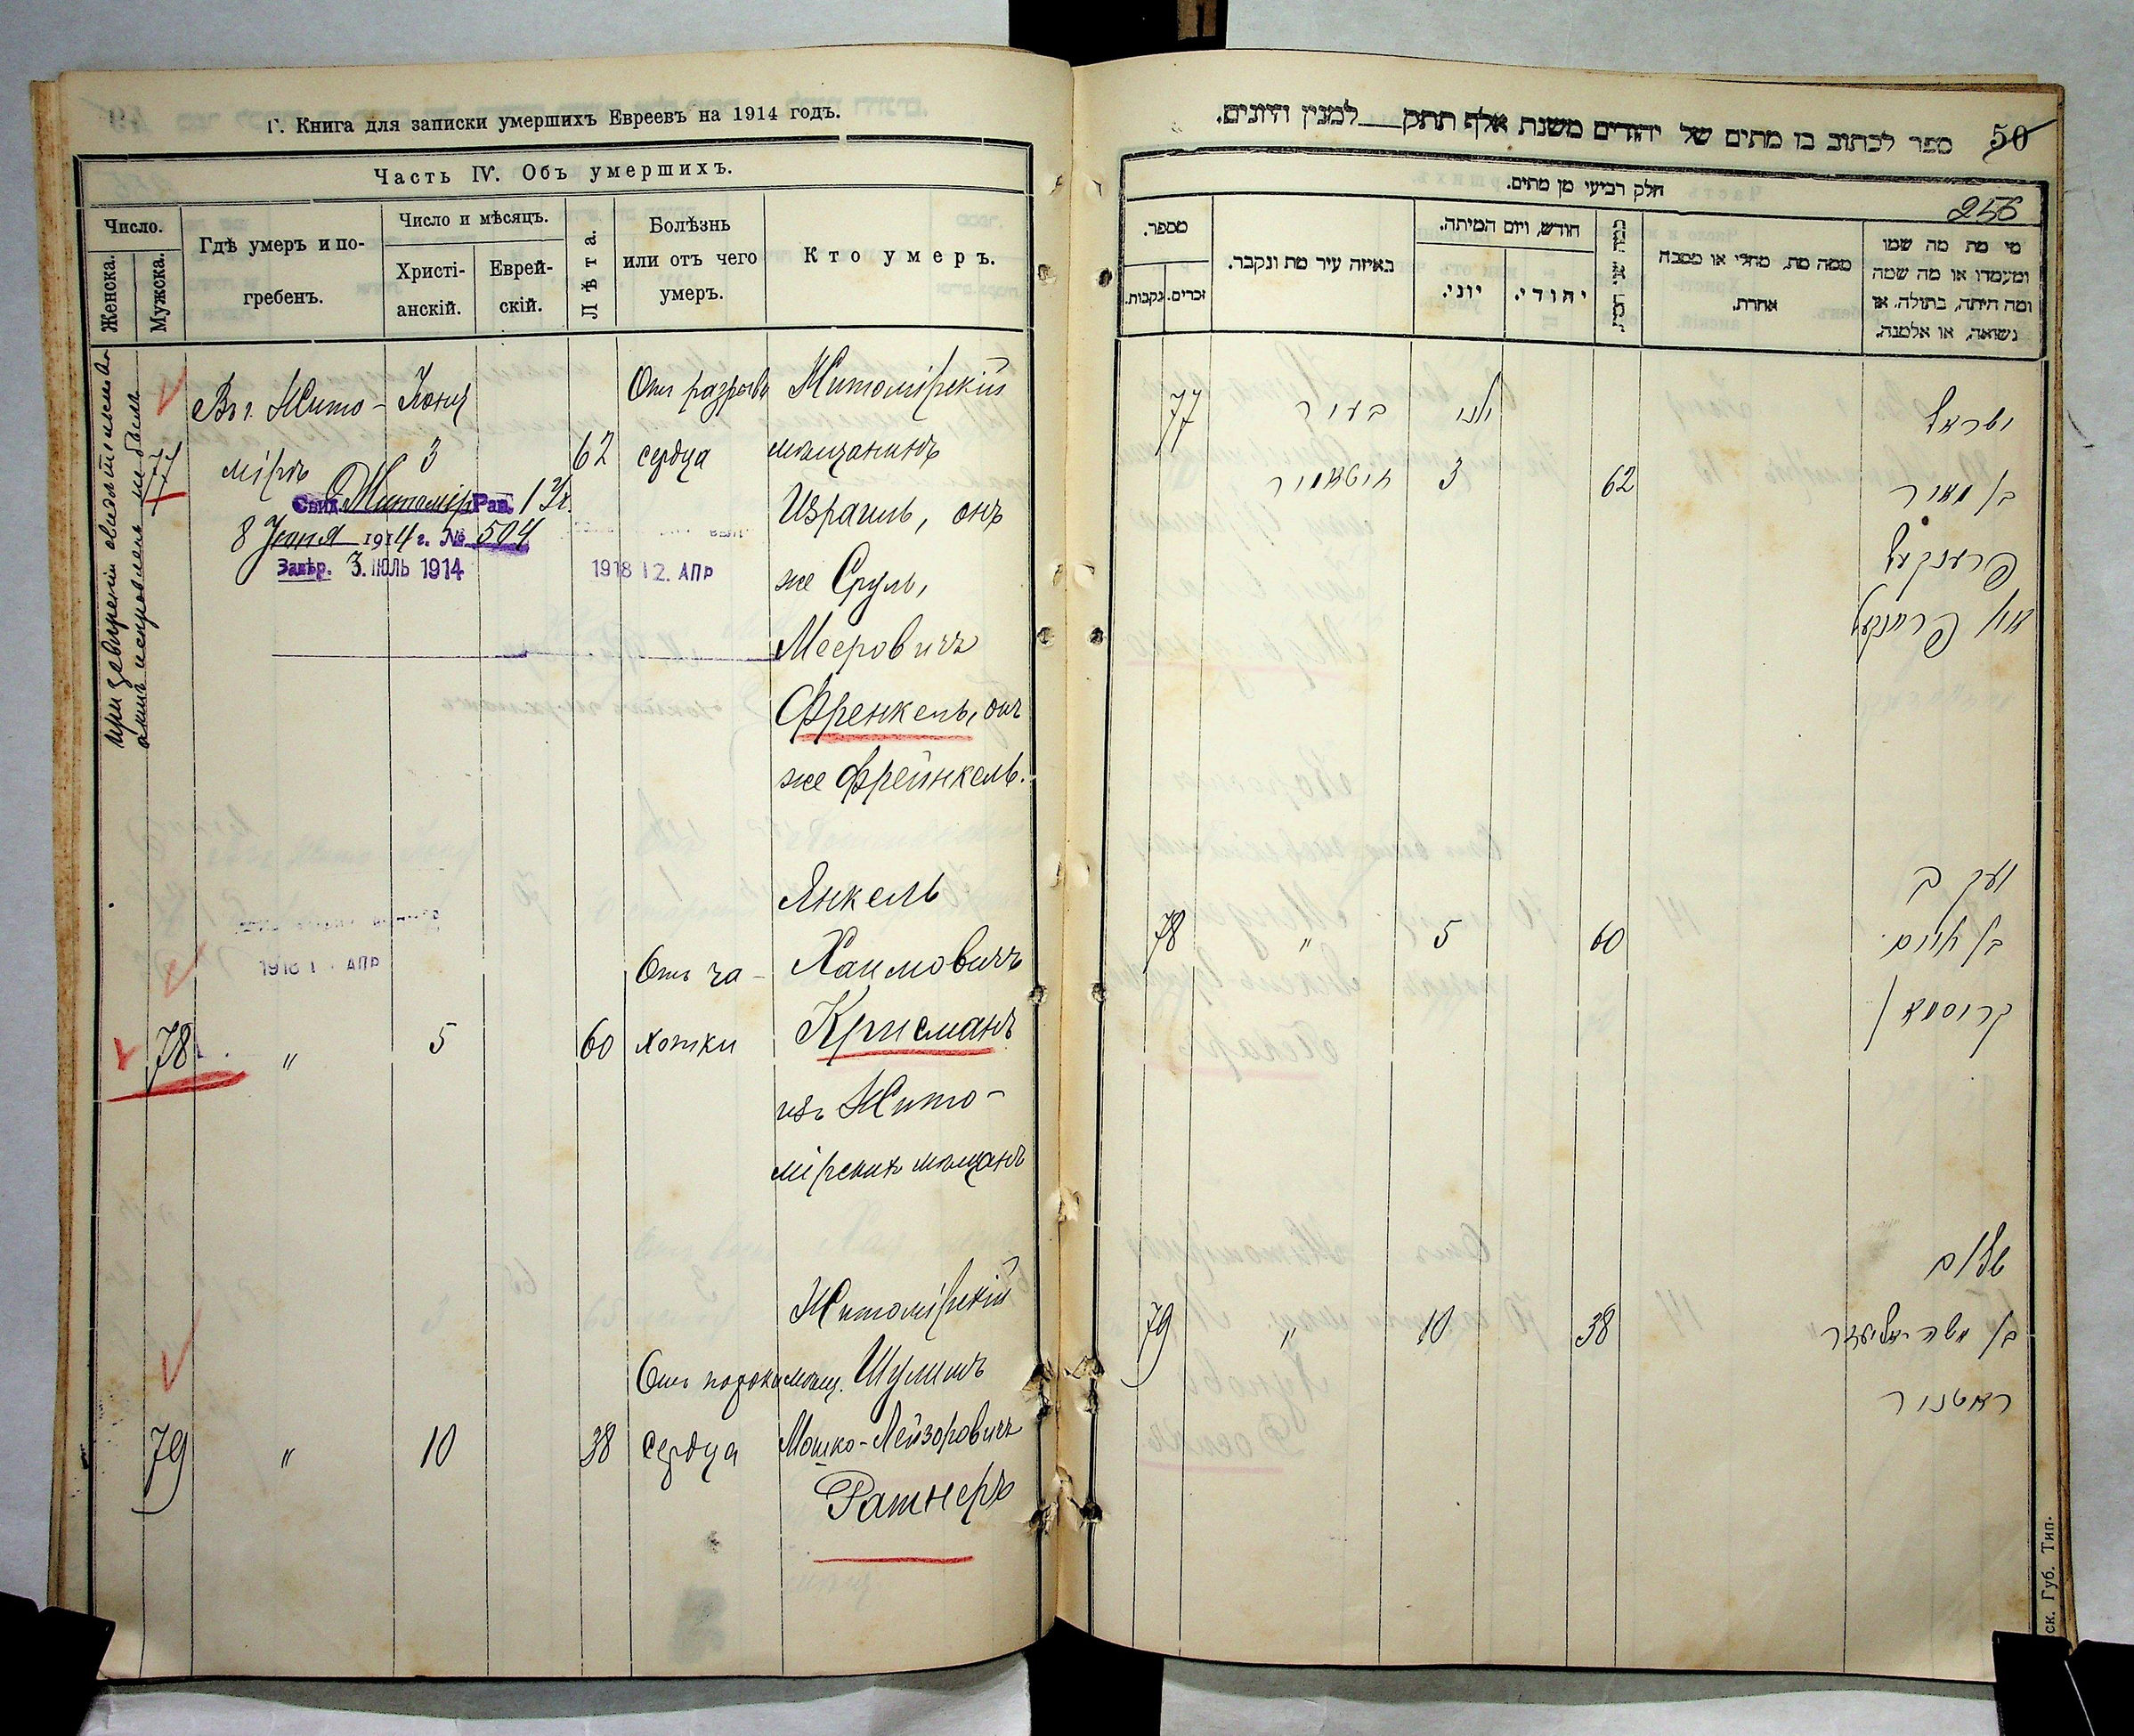 Г. Книга для записки умершихъ Евреевъ на 1914 годъ.
Часть IV. Объ умершихъ.
Число.
Женска.
Мужска.
Гдѣ умеръ и по-
гребенъ.
Число и мѣсяцъ.
Христі-
анскій.
Еврей-
скій.
Лѣта.
Болѣзнь
или отъ чего
умеръ.
Кто умеръ.
77
Въ г. Жито-
мірѣ
Іюня
3
62
Отъ разрыва
сердца
Житомірскій
мѣщанинъ
Израиль, онъ
же Сруль,
Мееровичъ
Френкель, онъ
же Фрейнкель.
Свид. Житомір. Рав.
8 Іюня 1914 г. № 504
Завѣр. 3. ІЮЛЬ 1914
1918 12. АПР
78
"
5
60
Отъ ча-
хотки
Янкель
Хаимовичъ
Крисманъ
изъ Жито-
мірскихъ мѣщанъ
АПР
79
"
10
38
Отъ порока
сердца
Житомірскій
мѣщ. Шулимъ
Мошко-Лейзоровичъ
Ратнеръ
50
ספר לכתוב בו מתים של יהודים משנת אלף תתק למנין היונים.
חלק רביעי מן מתים.
256
מספר.
זכרים.
נקבות.
באיזה עיר מת ונקבר.
חודש, ויום המיתה.
יוני.
יהודי.
ממה מת, מחלי או מסבה
אחרת.
מי מת מה שמו
ומעמדו או מה שמה
ומה היתה, בתולה, או
נשואה, או אלמנה.
77
בעיר
זיטאמיר
יוני
3
62
ישראל
בן מאיר
פרענקעל
78
"
5
60
יעקב
בן חיים
קריסמאן
79
"
10
38
שלום
בן משה אליעזר
ראטנער
ск. Губ. Тип.